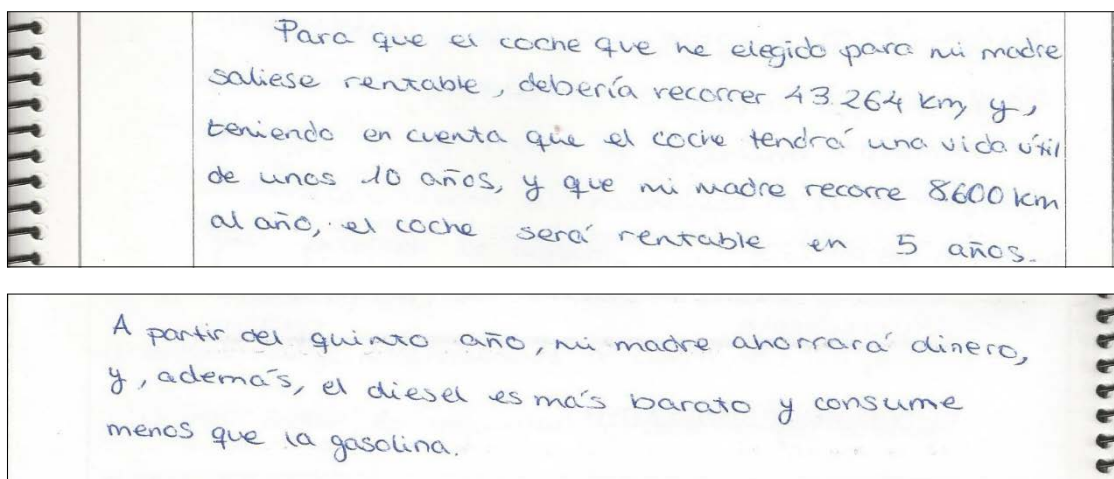 Para que el coche que he elegido para mi madre
saliese rentable, debería recorrer 43.264 km y,
teniendo en cuenta que el coche tendrá una vida útil
de unos 10 años, y que mi madre recorre 8.600 km
al año, el coche será rentable en 5 años.
A partir del quinto año, mi madre ahorrará dinero,
y, además, el diesel es más barato y consume
menos que la gasolina.